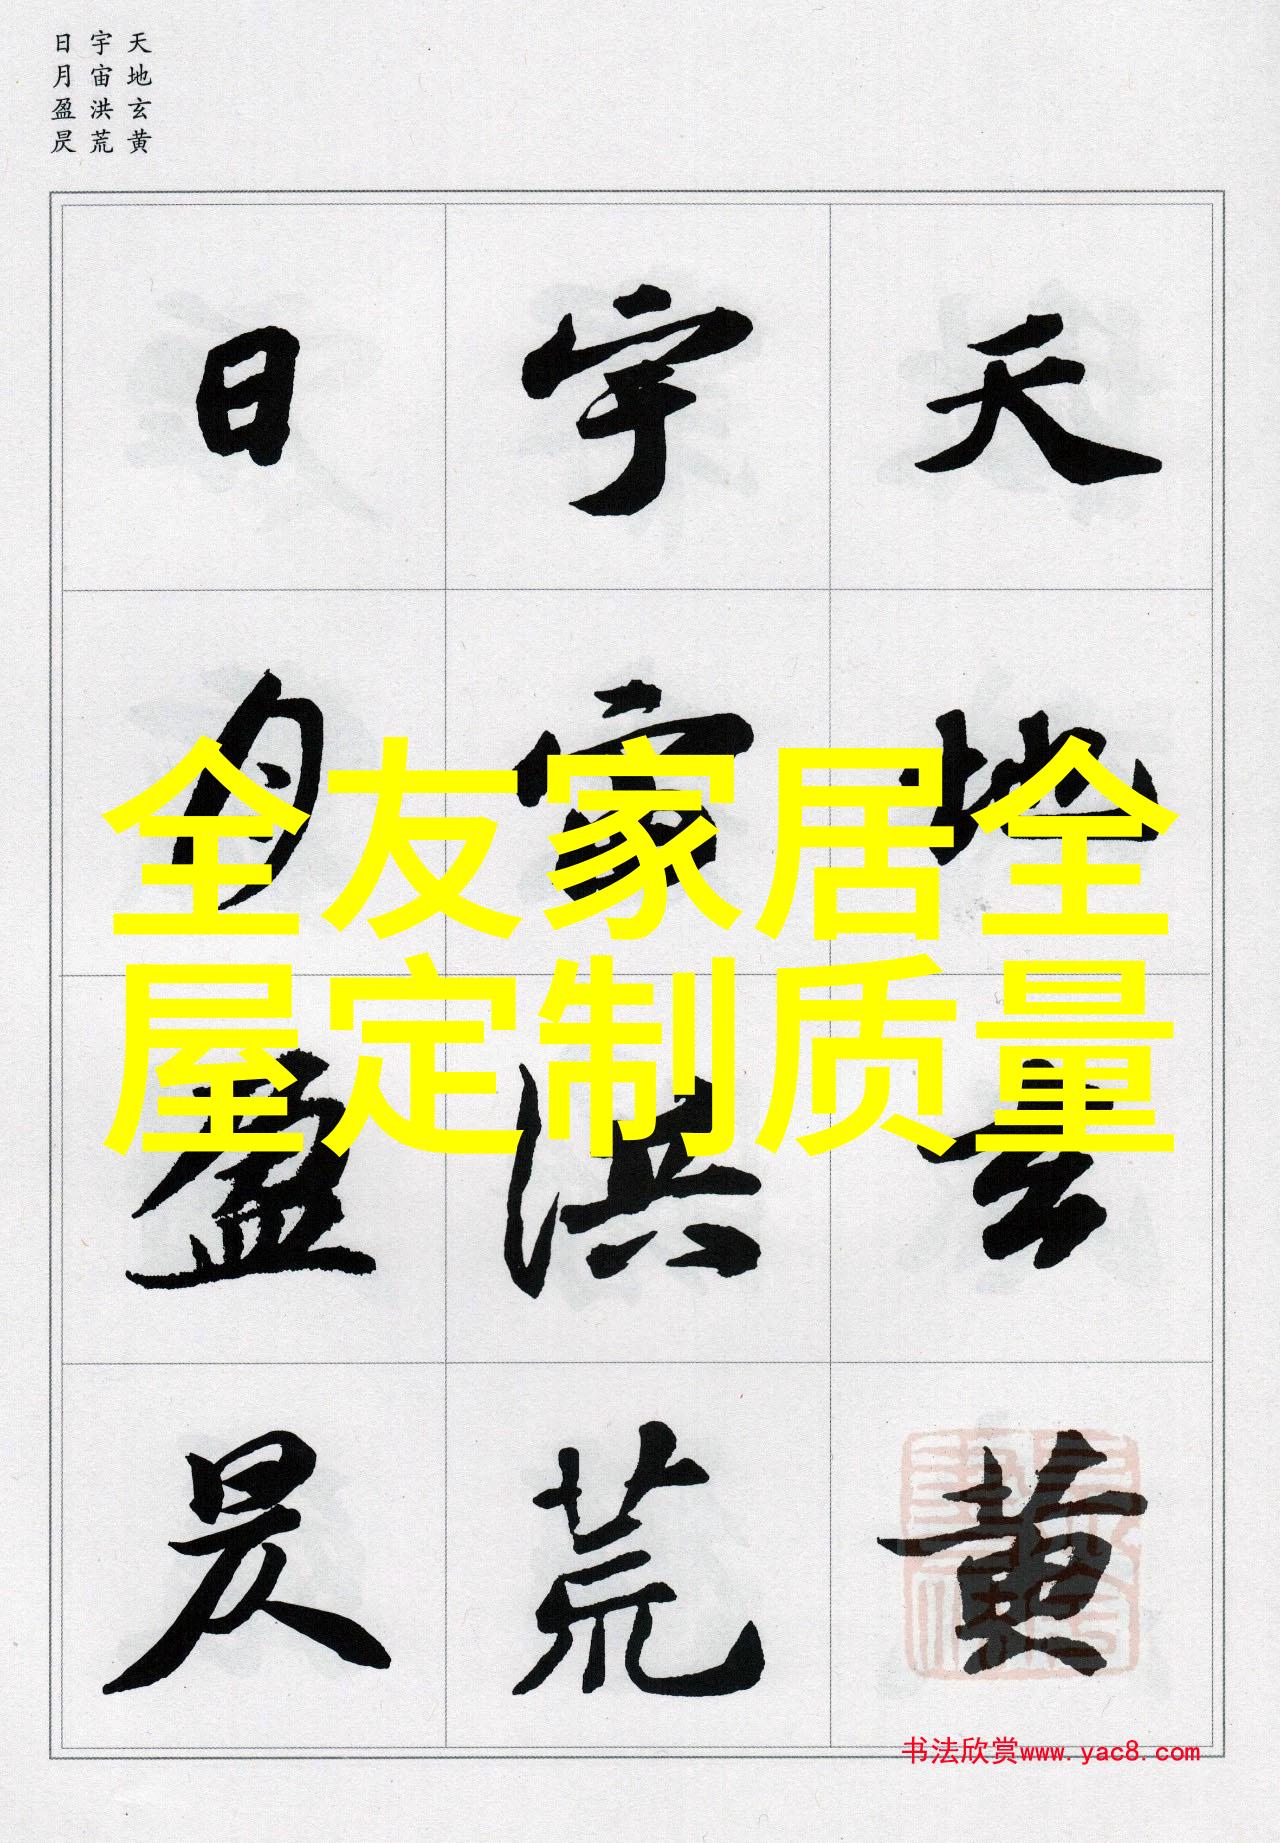 天地玄黄
宇宙洪荒
日月盈昃
天地玄黄
宇宙洪荒
日月盈昃
全友家居全
屋定制质量
书法欣赏www.yac8.com